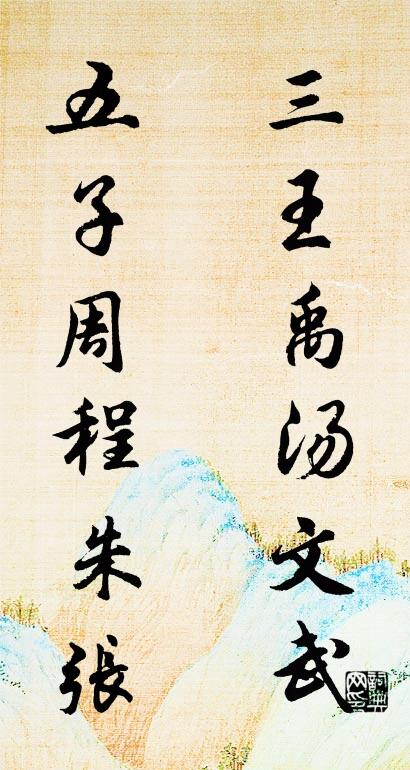 三王禹汤文武
五子周程朱張